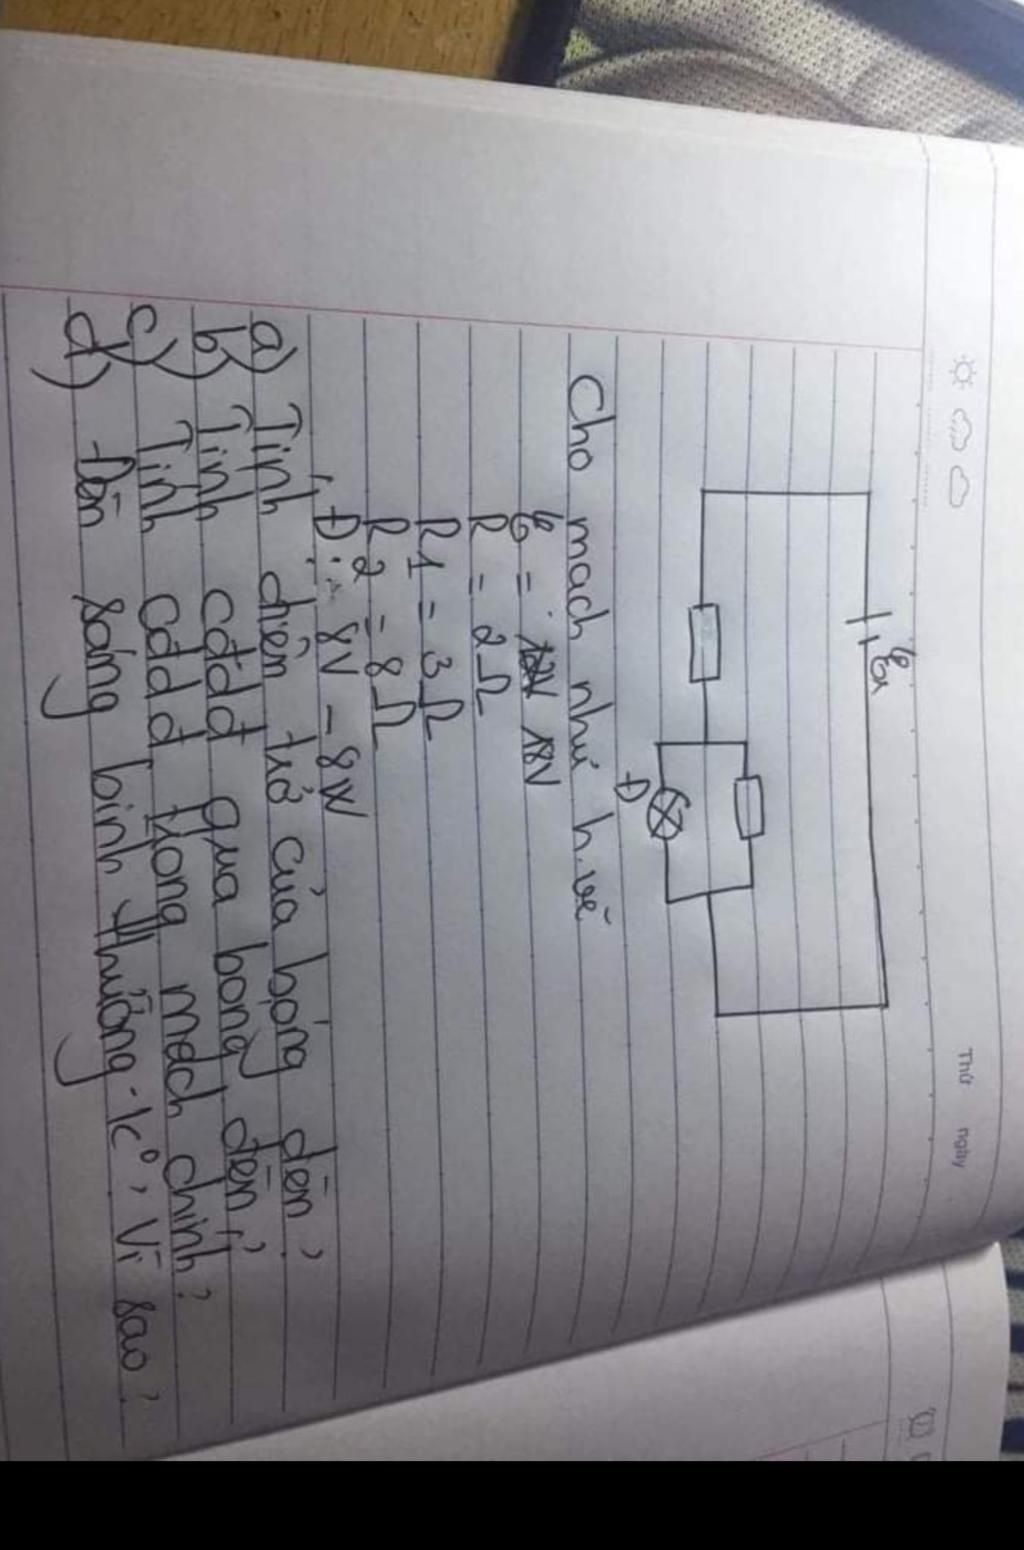 Thứ ngày
E,r
Đ
Cho mạch như h.vẽ
E = 18V
R = 2Ω
R1 = 3Ω
R2 = 8Ω
Đ: 8V - 8W
a) Tính điện trở của bóng đèn?
b) Tính cđdđ qua bóng đèn?
c) Tính cđdđ trong mạch chính?
d) Đèn sáng bình thường k°, Vì sao?